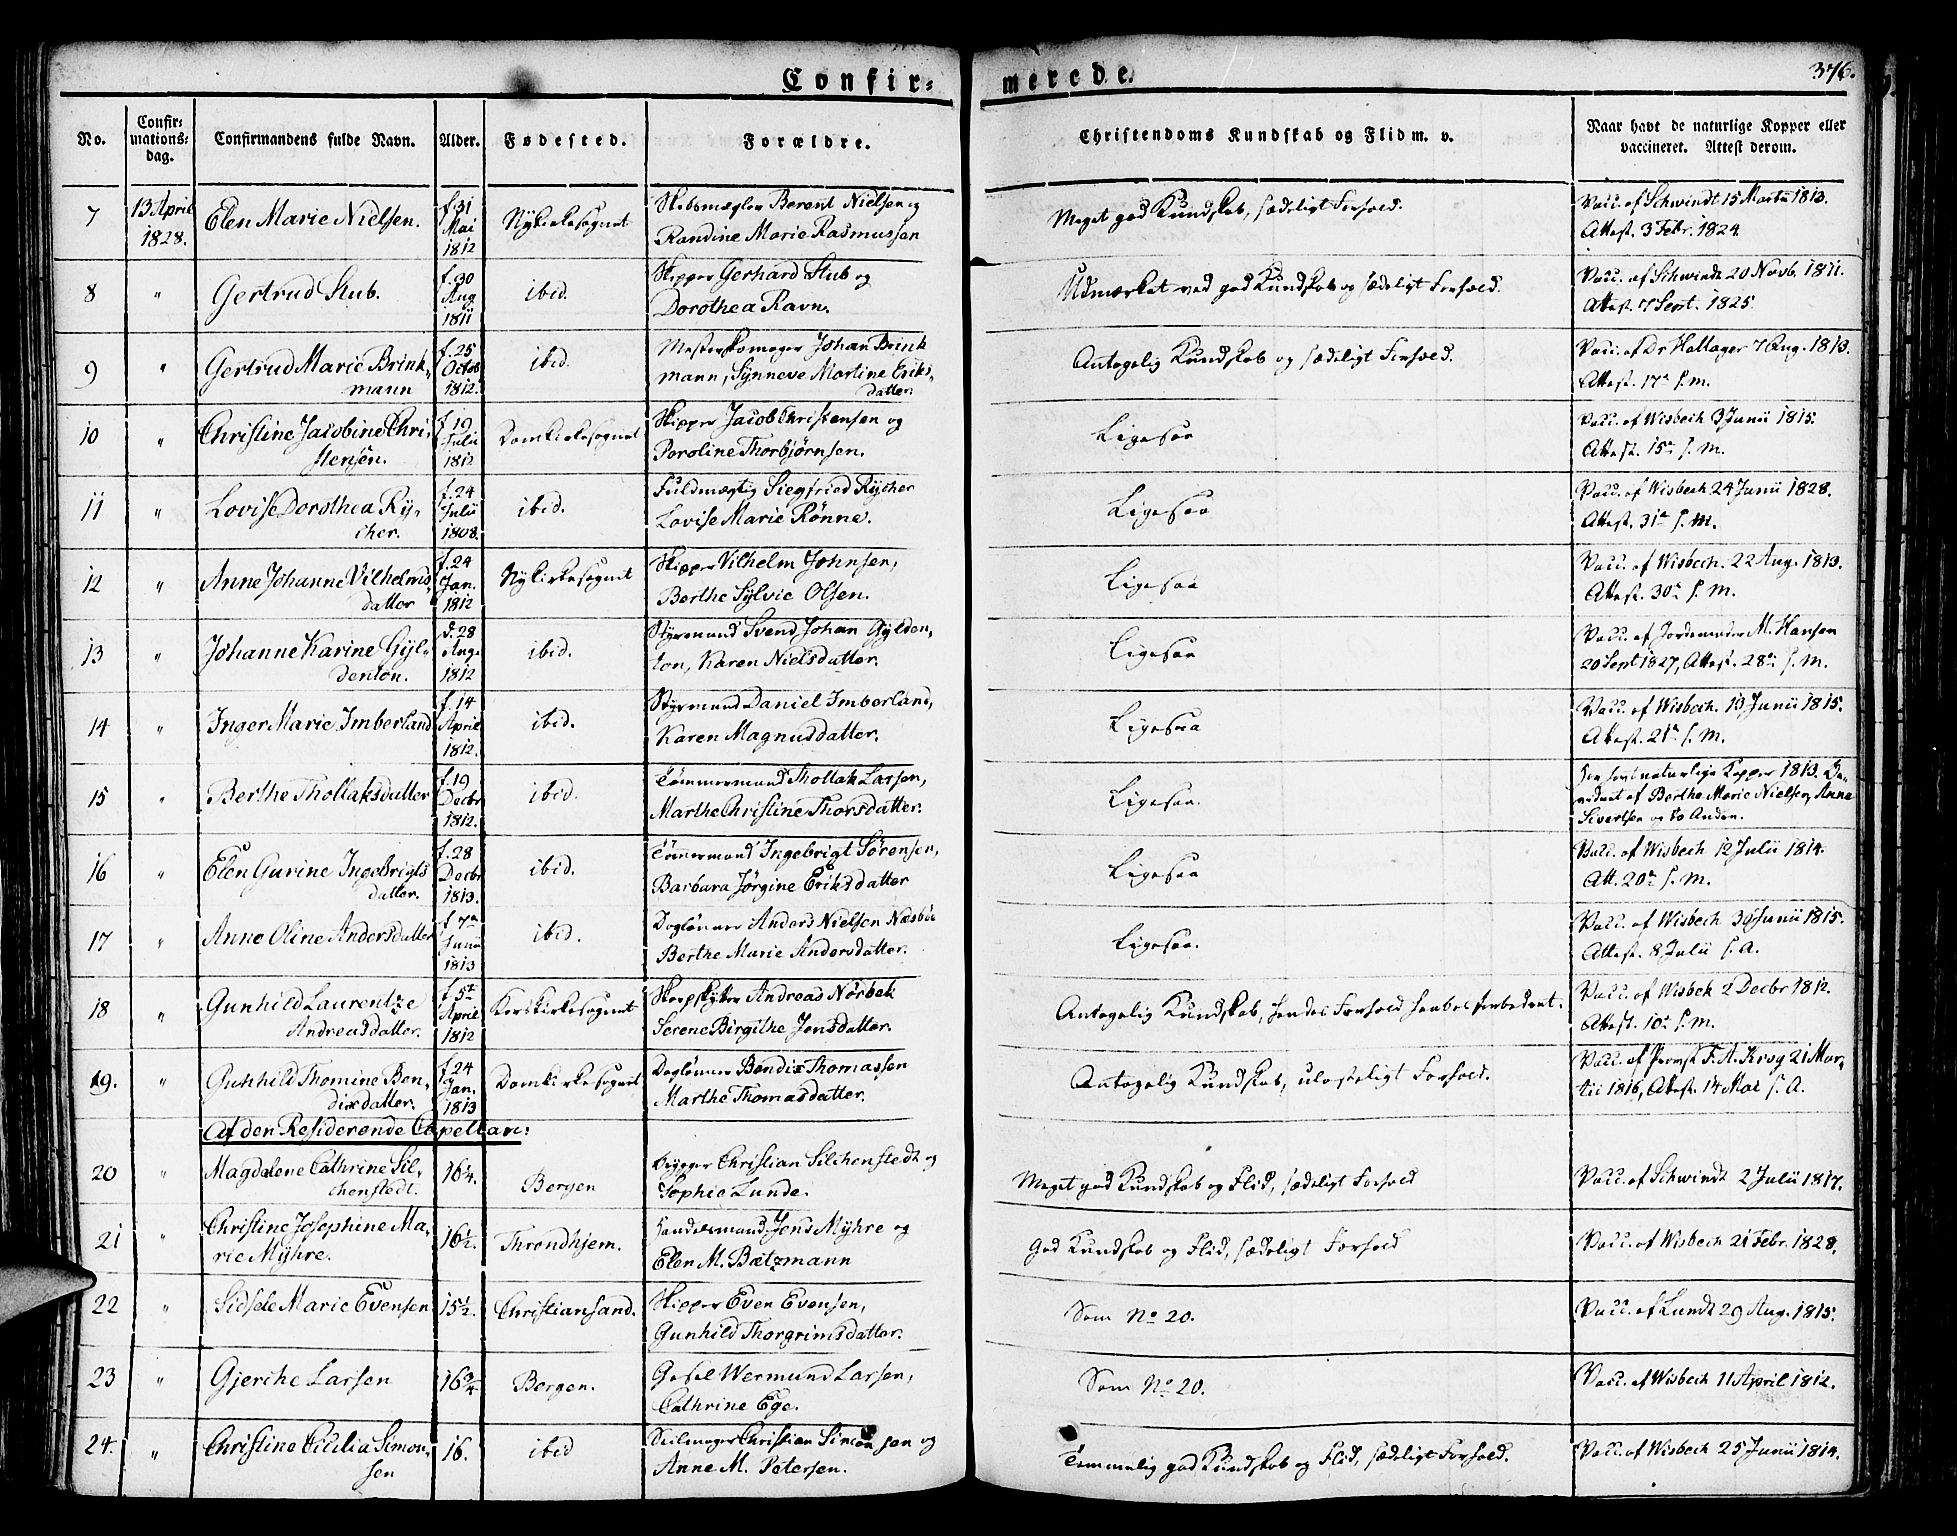 Confir=
merede.
376.
No.
Confir=
mations=
dag.
Confirmandens fulde Navn.
Alder.
Fødested.
Forældre.
Christendoms Kundskab og Flid m. v.
Naar havt de naturlige Kopper eller
vaccineret. Attest derom.
7
13 April
1828.
Elen Marie Nielsen.
f. 31
Mai
1812
Nykirkesognet
Skibsmægler Berent Nielsen og
Randine Marie Rasmussen
Meget god Kundskab, sædeligt Forhold.
Vacc. af Schwindt 15 Martii 1813.
Attest. 3 Febr. 1824
8
"
Gertrud Stub.
f. 30
Aug
1811
ibid.
Skipper Gerhard Stub og
Dorothea Ravn.
Udmærket ved god Kundskab og sædeligt Forhold.
Vacc. af Schwindt 20 Novb. 1811.
Attest. 7 Sept. 1825.
9
"
Gertrud Marie Brink=
mann
f. 25
Octob
1812.
ibid.
Mesterskomager Johan Brink
mann, Synneve Martine Eriks=
datter.
Antagelig Kundskab og sædeligt Forhold.
Vacc. af Dr Hallager 7 Aug. 1813.
Attest. 17de s. m.
10
"
Christine Jacobine Chri=
stensen.
f. 19
Julii
1812
Domkirkesognet
Skipper Jacob Christensen og
Paroline Thorbjørnsen.
Ligesaa
Vacc. af Wisbech 3 Junii 1815.
Attest. 15de s. m.
11
"
Lovise Dorothea Ry=
cher.
f. 24
Julii
1808.
ibid.
Fuldmægtig Siegfried Rycher
Lovise Marie Rønne.
Ligesaa
Vacc. af Wisbech 24 Junii 1828.
Attest. 31te s. m.
12
"
Anne Johanne Vilhelms=
datter
f. 24
Jan.
1812
Nykirkesognet
Skipper Vilhelm Johnsen,
Berthe Sylvie Olsen.
Ligesaa
Vacc. af Wisbech. 22 Aug. 1813.
Attest. 30te s. m.
13
"
Johanne Karine Gyl=
denton.
d. 28
Aug.
1812
ibid.
Styrmand Svend Johan Gylden,
ton, Karen Nielsdatter.
Ligesaa
Vacc. af Jordemoder M. Hansen
20 Sept 1827, Attest. 28de s. m.
14
"
Inger Marie Imberland
f. 14
April
1812.
ibid.
Styrmand Daniel Imberland,
Karen Magnusdatter.
Ligesaa
Vacc. af Wisbech. 13 Junii 1815.
Attest. 21de s. m.
15
"
Berthe Thollaksdatter
f. 19
Decbr
1812.
ibid.
Tømmermand Thollak Larsen,
Marthe Christine Thorsdatter.
Ligesaa.
Har havt naturlige Kopper 1813. Be=
vidnet af Berthe Marie Nielsen, Anne
Sivertsen og to Andre.
16
"
Elen Gurine Ingebrigts
datter.
f. 28
Decbr
1813.
ibid.
Tømmermand Ingebrigt Sørensen,
Barbara Jørgine Eriksdatter
Ligesaa
Vacc. af Wisbech 12 Julii 1814.
Att. 20de s. m.
17
"
Anne Oline Andersdatter
f 7de
Junii
1813
ibid.
Dagløнner Anders Nielsen Næsbøe
Berthe Marie Andersdatter.
Ligesaa.
Vacc. af Wisbech 30 Junii 1815.
Attest. 8 Julii s. A.
18
"
Gunhild Laurentze
Andreasdatter.
f 5te
April
1812
Korskirkesognet
Skarpskytter Andreas Nørbek
Serene Birgithe Jensdatter.
Antagelig Kundskab, hendes Forhold haabes forbedret.
Vacc. af Wisbek 2 Decbr 1812.
Attest. 10de s. m.
19.
"
Gunhild Thomine Ben,
dixdatter.
f. 24
Jan.
1813
Domkirkesognet
Dagløнner Bendix Thomassen
Marthe Thomasdatter.
Antagelig Kundskab, ulasteligt Forhold.
Vacc. af Provst F. A. Krog 21 Mar=
tii 1816, Attest. 14 Mai s. A.
Af den Residerende Capellan:
20
"
Magdalene Cathrine Sil=
chenstedt.
16 1/4.
Bergen
Brygger Christian Silchenstedt og
Sophie Lunde.
Meget god Kundskab og Flid, sædeligt Forhold
Vacc. af Schwindt 2 Julii 1817.
21
"
Christine Josephine Ma=
rie Myhre.
16 1/2.
Throndhjem.
Handelsmand Jens Myhre og
Elen M. Bætzmann
God Kundskab og Flid, sædeligt Forhold
Vacc. af Wisbech 21 Febr. 1828.
22
"
Sidsele Marie Evensen
15 1/2.
Christiansand.
Skipper Even Evensen,
Gunhild Thorgrimsdatter.
Som No 20.
Vacc. af Lundt 29 Aug. 1815.
23
"
Gjerche Larsen
16 3/4.
Bergen.
Gesel Wermund Larsen,
Cathrine Ege.
Som No 20.
Vacc. af Wisbech 11 April 1812.
24.
"
Christine Cicilia Simon=
sen
16.
ibid
Seilmager Christian Simonsen og
Anne M. Petersen.
Temmelig god Kundskab og Flid, sædeligt Forhold.
Vacc. af Wisbech 25 Junii 1814.